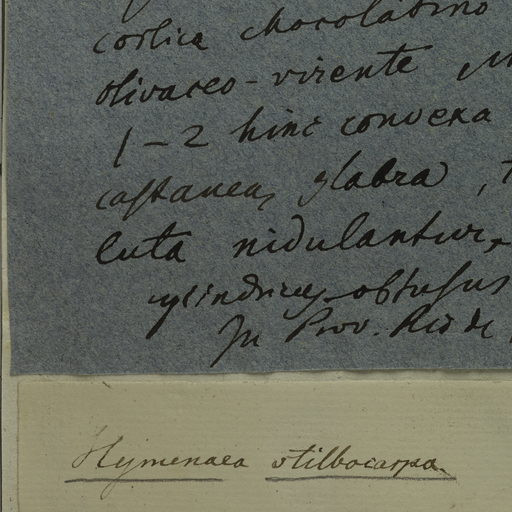 cortice chocolatino
olivaceo-virente
1-2 hinc convexa
castanea, glabra,
luta nidulantur,
cylindricus obtusus
In Prov. Rio de
Hymenaea stilbocarpa.